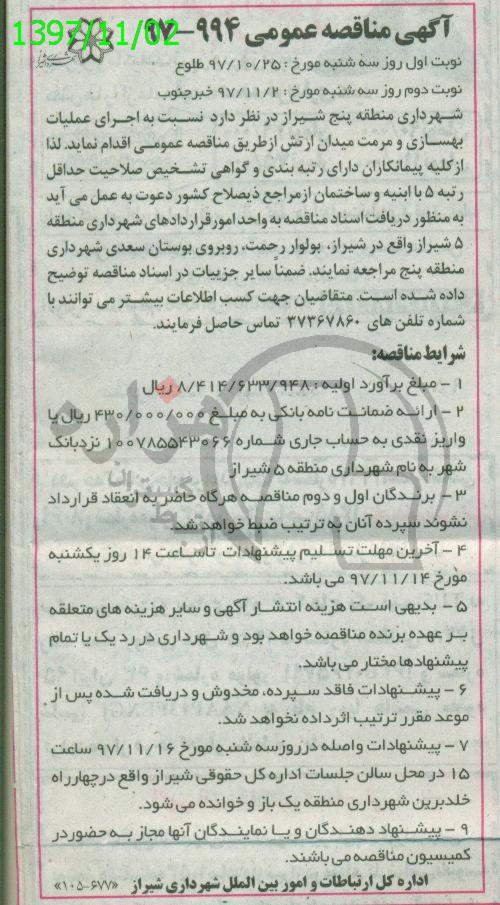 1397/11/02
آگهی مناقصه عمومی ۹۹۴-۹۷
نوبت اول روز سه شنبه مورخ : ۹۷/۱۰/۲۵ طلوع
نوبت دوم روز سه شنبه مورخ : ۹۷/۱۱/۲ خبرجنوب
شهرداری منطقه پنج شیراز در نظر دارد نسبت به اجرای عملیات
بهسازی و مرمت میدان ارتش ازطریق مناقصه عمومی اقدام نماید. لذا
از کلیه پیمانکاران دارای رتبه بندی و گواهی تشخیص صلاحیت حداقل
رتبه ۵ با ابنیه و ساختمان ازمراجع ذیصلاح کشور دعوت به عمل می آید
به منظور دریافت اسناد مناقصه به واحد امور قراردادهای شهرداری منطقه
۵ شیراز واقع در شیراز، بولوار رحمت، روبروی بوستان سعدی شهرداری
منطقه پنج مراجعه نمایند. ضمناً سایر جزییات در اسناد مناقصه توضیح
داده شده است. متقاضیان جهت کسب اطلاعات بیشتر می توانند با
شماره تلفن های ۳۷۳۶۷۸۶۰ تماس حاصل فرمایند.
شرایط مناقصه:
۱ - مبلغ برآورد اولیه : ۸/۴۱۴/۶۳۳/۹۴۸ ریال
۲ - ارائه ضمانت نامه بانکی به مبلغ ۴۳۰/۰۰۰/۰۰۰ ریال یا
واریز نقدی به حساب جاری شماره ۱۰۰۷۸۵۵۴۳۰۶۶ نزدبانک
شهر به نام شهرداری منطقه ۵ شیراز
۳ - برندگان اول و دوم مناقصه هرگاه حاضر به انعقاد قرارداد
نشوند سپرده آنان به ترتیب ضبط خواهد شد.
۴ - آخرین مهلت تسلیم پیشنهادات تاساعت ۱۴ روز یکشنبه
مورخ ۹۷/۱۱/۱۴ می باشد.
۵ - بدیهی است هزینه انتشار آگهی و سایر هزینه های متعلقه
بر عهده برنده مناقصه خواهد بود و شهرداری در رد یک یا تمام
پیشنهادها مختار می باشد.
۶ - پیشنهادات فاقد سپرده، مخدوش و دریافت شده پس از
موعد مقرر ترتیب اثرداده نخواهد شد.
۷ - پیشنهادات واصله درروزسه شنبه مورخ ۹۷/۱۱/۱۶ ساعت
۱۵ در محل سالن جلسات اداره کل حقوقی شیراز واقع درچهارراه
خلدبرین شهرداری منطقه یک باز و خوانده می شود.
۹ - پیشنهاد دهندگان و یا نمایندگان آنها مجاز به حضوردر
کمیسیون مناقصه می باشند.
اداره کل ارتباطات و امور بین الملل شهرداری شیراز «۱۰۵-۶۷۷»